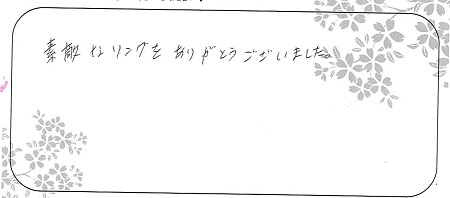 素敵なリングをありがとうございました。